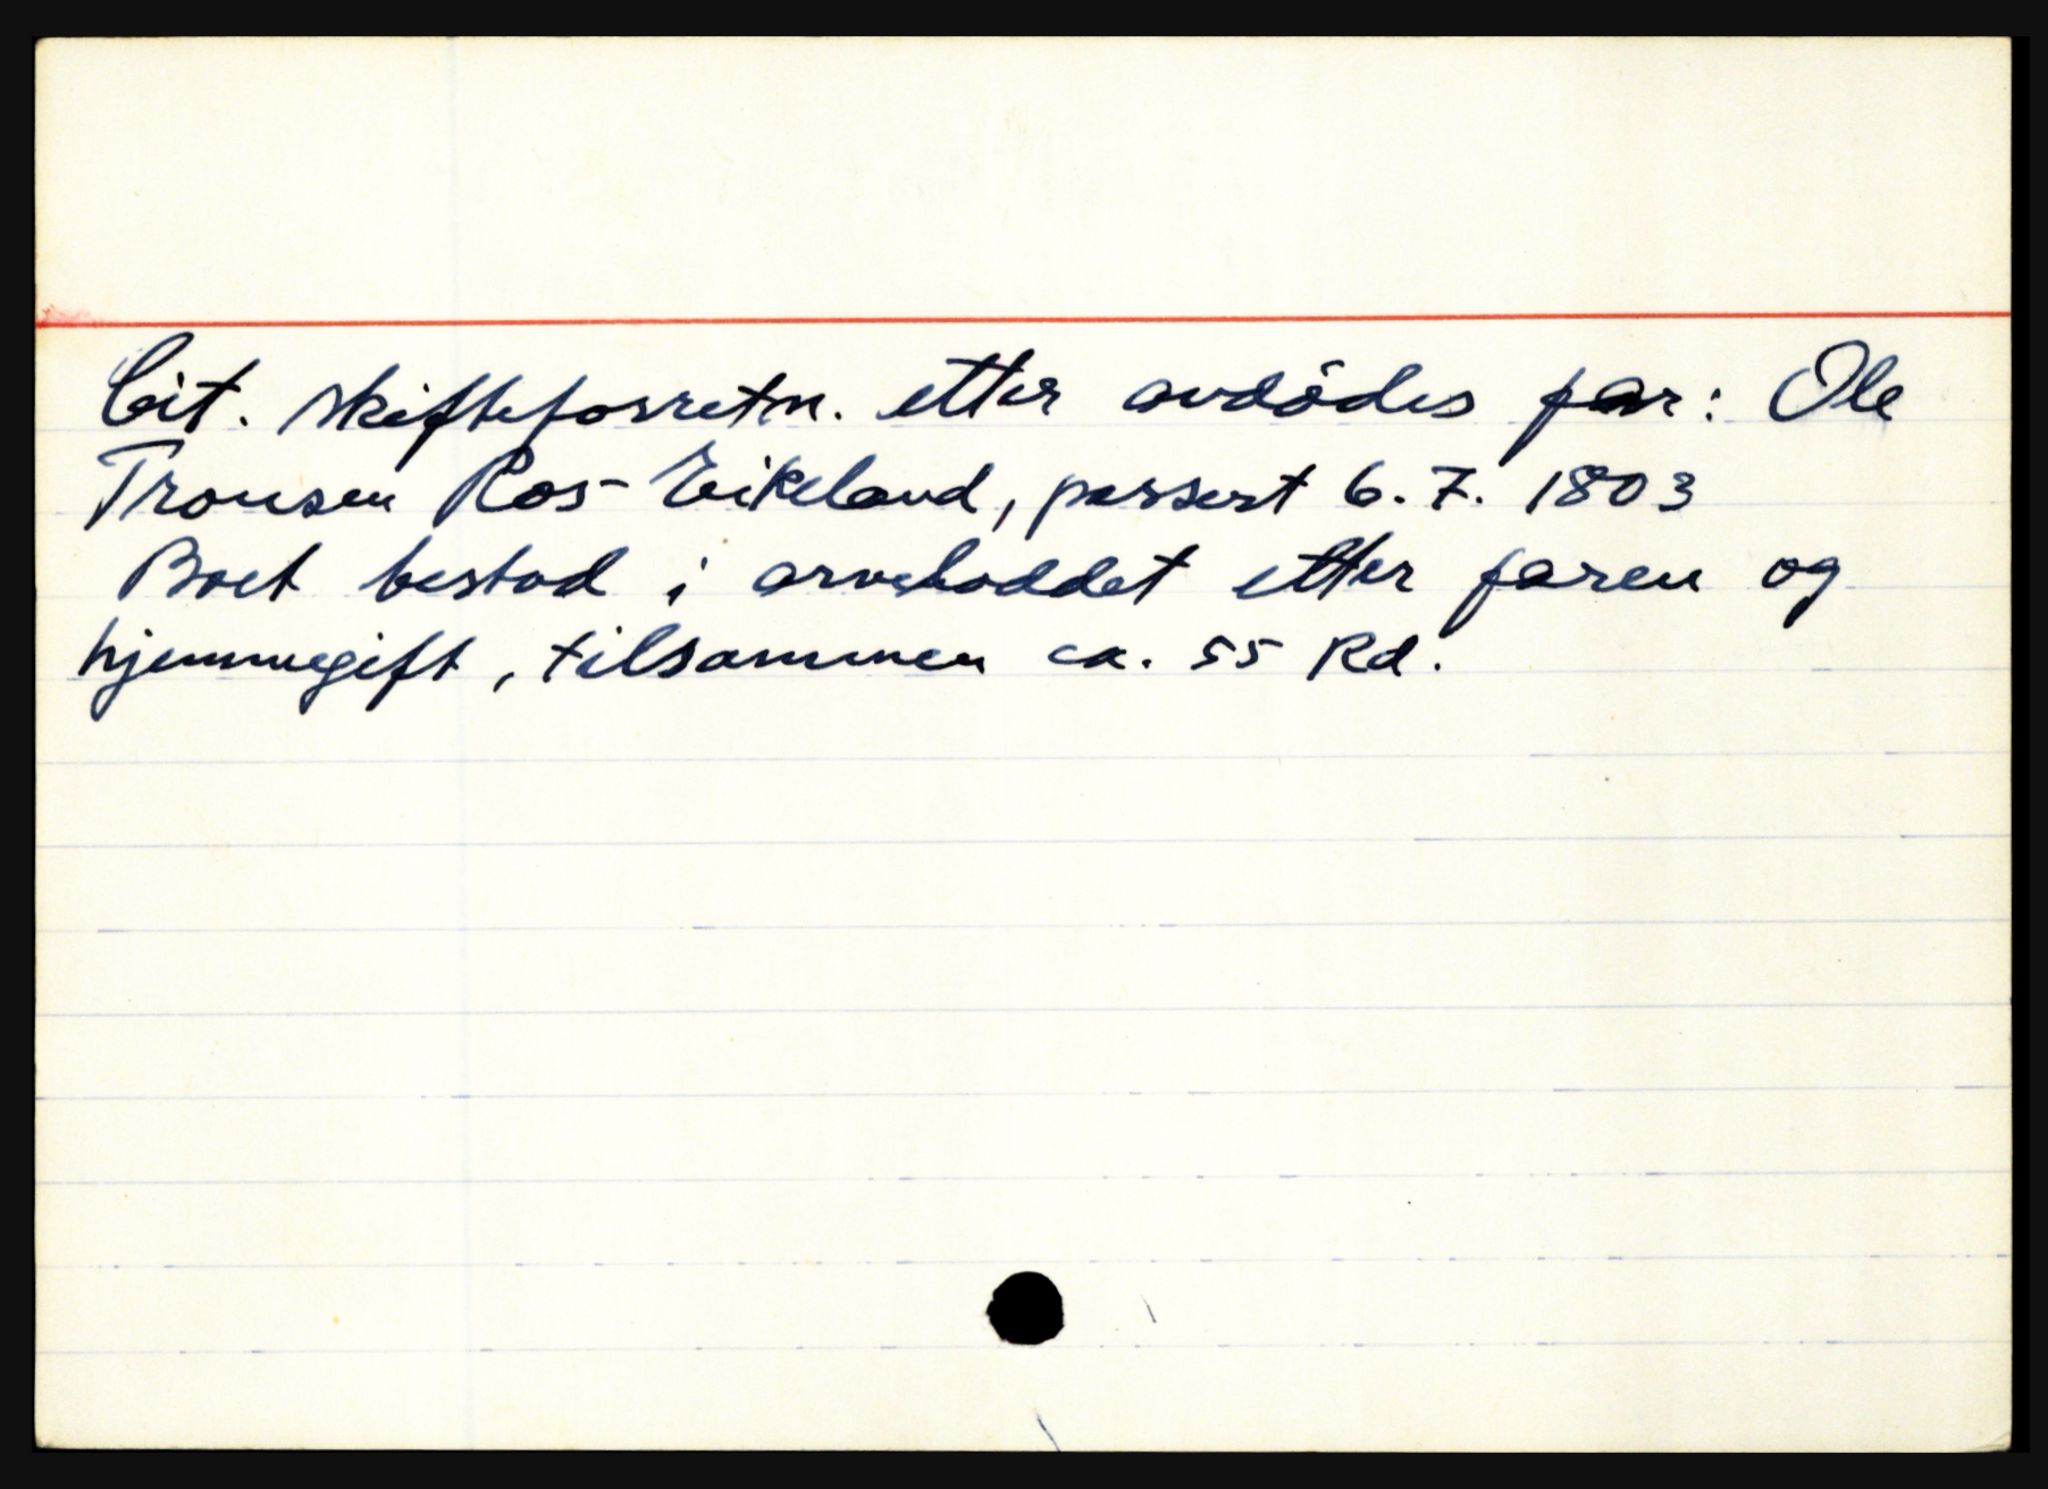 Cit. skifteforretn. etter avdödes far: Ole
Tronsen Ros-Eikeland, passert 6.7. 1803
Boet bestod i arveloddet etter faren og
hjemmegift, tilsammen ca. 55 Rd.